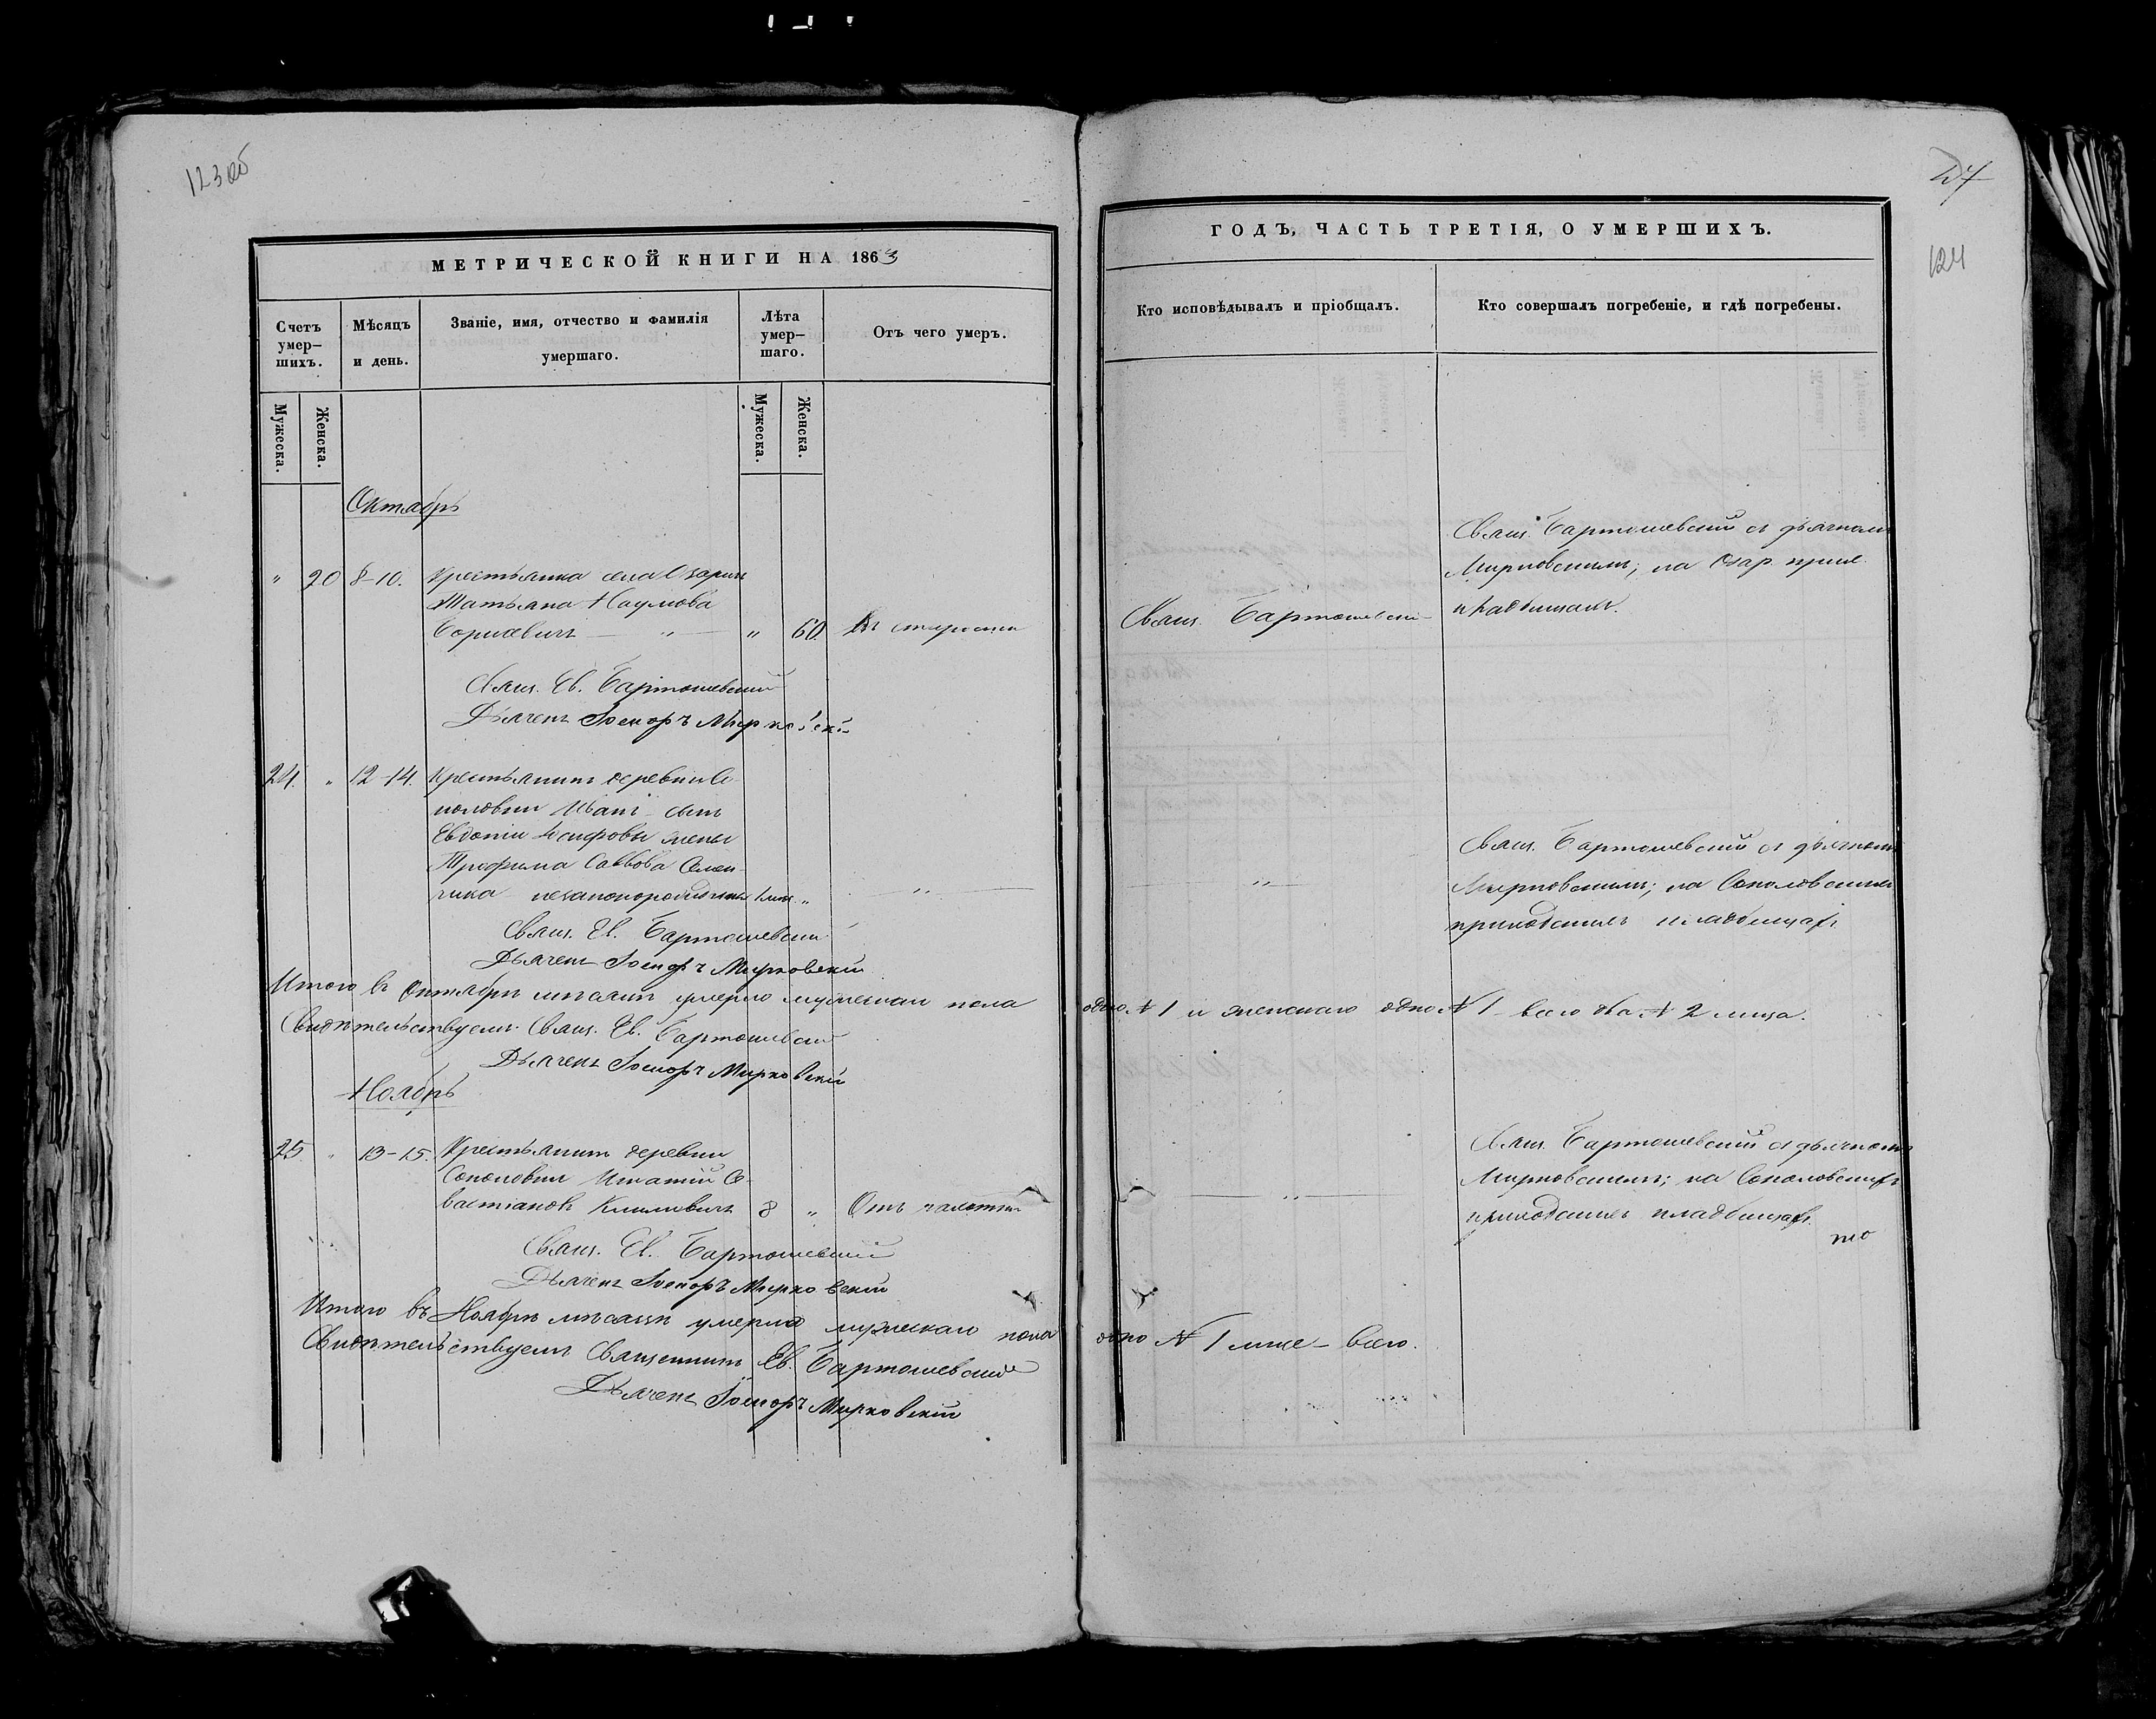 123 об
МЕТРИЧЕСКОЙ КНИГИ НА 1863
Счетъ умер-шихъ.
Мѣсяцъ и день.
Званіе, имя, отчество и фамилія умершаго.
Лѣта умер-шаго.
Отъ чего умеръ.
Мужеска.
Женска.
Мужеска.
Женска.
Октябрь
" 20 8-10. Крестьянка села Озаричь
Татьяна Наумова
" 60. Отъ старости
Свящ. Ев. Бартошевскій
Дьячекъ Іосифъ Мирковскій
24. " 12-14. Крестьянинъ деревни Со-
коловки Иванъ сынъ
Евдокіи Іосифовы жены
Трофима Саввова
незаконорожденный
Свящ. Ев. Бартошевскій
Дьячекъ Мирковскій
Итого въ Октябрѣ мѣсяцѣ умерло мужескаго пола
Свидѣтельствуемъ Свящ. Ев. Бартошевскій
Дьячекъ Мирковскій
Ноябрь
25. " 13-15. Крестьянинъ деревни
Соколовки Игнатій Се-
вастіановъ Климовичъ 8 " Отъ чахотки
Свящ. Ев. Бартошевскій
Дьячекъ Мирковскій
Итого въ Ноябрѣ мѣсяцѣ умерло мужескаго пола
Свидѣтельствуемъ Священникъ Ев. Бартошевскій
Дьячекъ Мирковскій
124
ГОДЪ, ЧАСТЬ ТРЕТІЯ, О УМЕРШИХЪ.
Кто исповѣдывалъ и пріобщалъ.
Кто совершалъ погребеніе, и гдѣ погребены.
Свящ. Бартошевскій съ дьячкомъ
Мирковскимъ; на Озар. прих.
кладбищахъ.
Свящ. Бартошевскій
Свящ. Бартошевскій съ дьячкомъ
Мирковскимъ; на Соколовскихъ
приходскихъ кладбищахъ
одно № 1 и женскаго одно № 1 всего два № 2 лица.
Свящ. Бартошевскій съ дьячкомъ
Мирковскимъ; на Соколовскихъ
приходскихъ кладбищахъ.
одно № 1 лице всего.